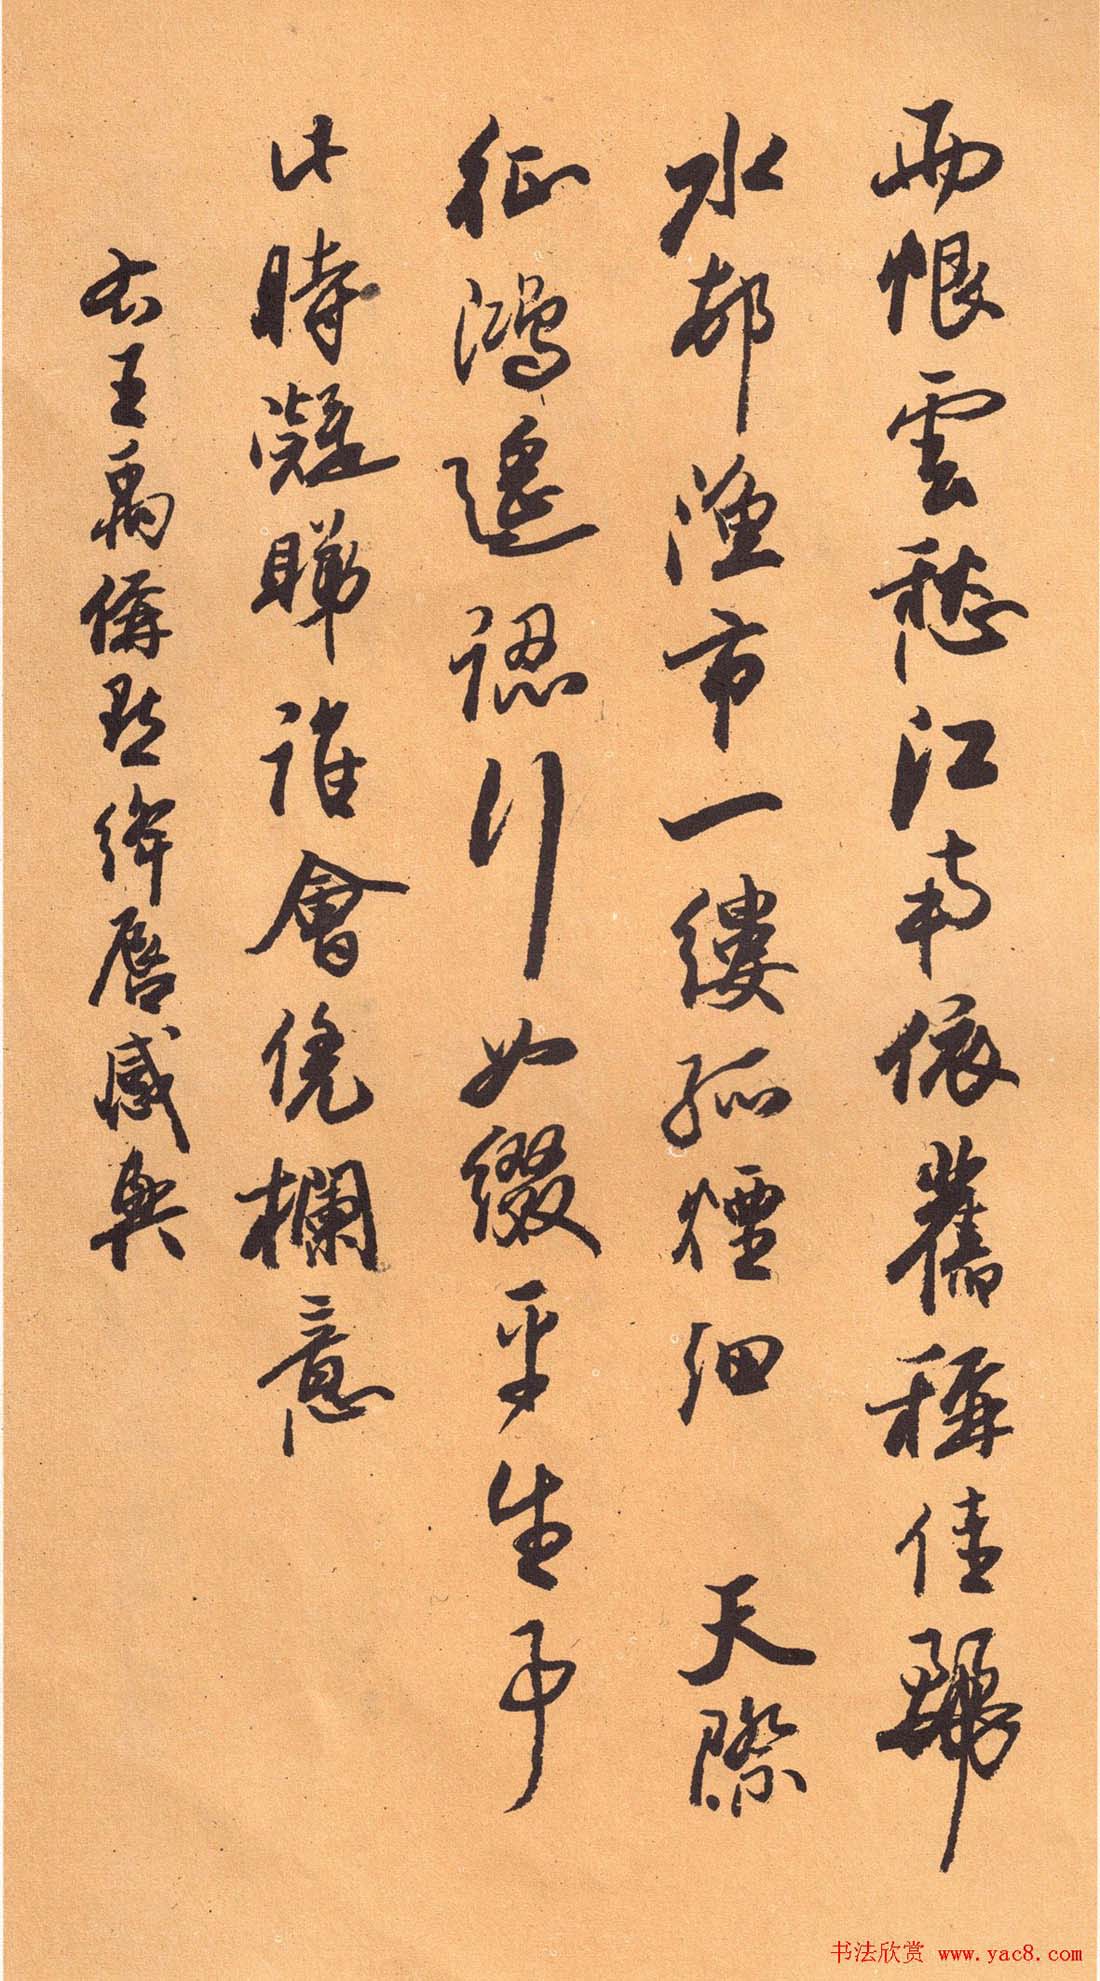 雨恨雲愁江南依舊稱佳麗
水邨漁市一縷孤煙細　天際
征鴻遙認行如綴平生事
此時凝睇誰會凭欄意
右王禹偁點絳唇感興
书法欣赏 www.yac8.com